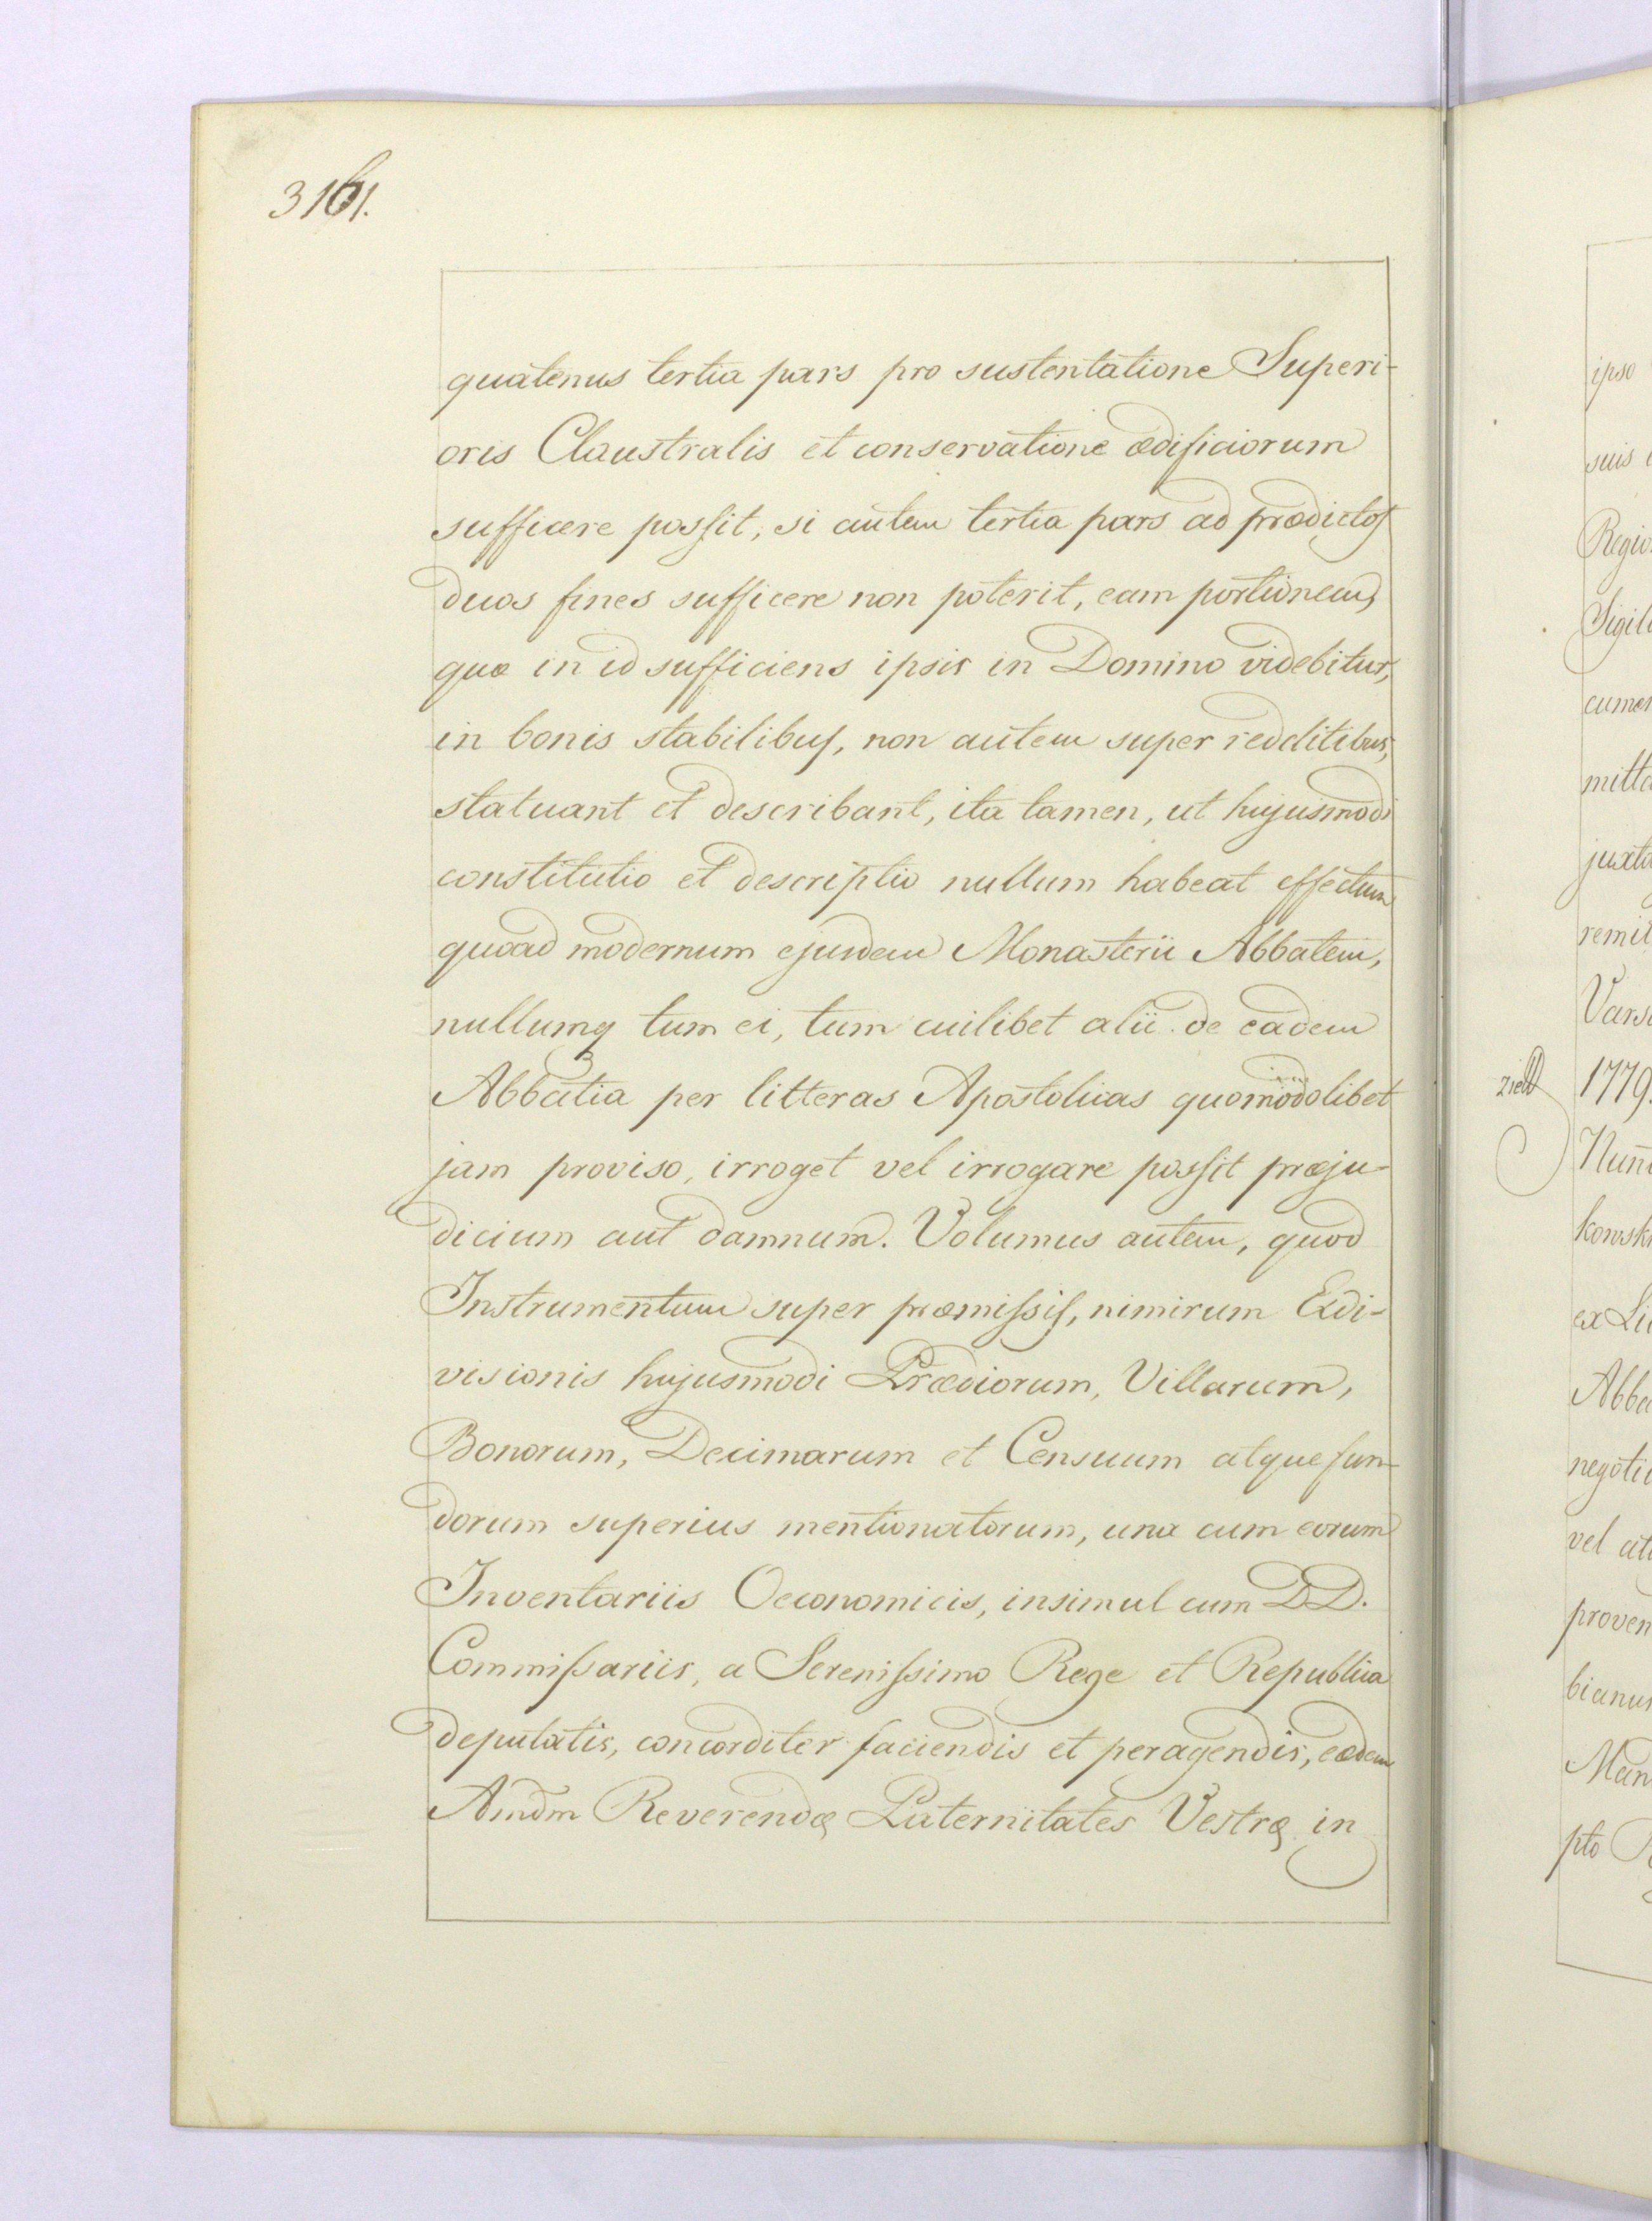 3161.
quatenus tertia pars pro sustentatione Superi-
oris Claustralis et conservatione ædificiorum
sufficere possit, si autem tertia pars ad prædictos
duos fines sufficere non poterit, eam portionem,
quæ in id sufficiens ipsis in Domino videbitur,
in bonis stabilibus, non autem super redditibus,
statuant et describant, ita tamen, ut hujusmodi
constitutio et descriptio nullum habeat effectum
quoad modernum ejusdem Monasterii Abbatem,
nullumq tum ei, tum cuilibet alii de eadem
Abbatia per litteras Apostolicas quomodolibet
jam proviso, irroget vel irrogare possit præju-
dicium aut damnum. Volumus autem, quod
Instrumentum super præmissis, nimirum Exdi-
visionis hujusmodi Prædiorum, Villarum,
Bonorum, Decimarum et Censuum atque fun-
dorum superius mentionatorum, una cum eorum
Inventariis Oeconomicis, insimul cum DD.
Commissariis, a Serenissimo Rege et Republica
deputatis, concorditer faciendis et peragendis, eædem
Amdm Reverendæ Paternitates Vestræ in
ipso
suis
Sigil
mitt
juxta
remit
1779.
kowsk
ex
Abba
negoti
vel
proven
bianus
Man
pto